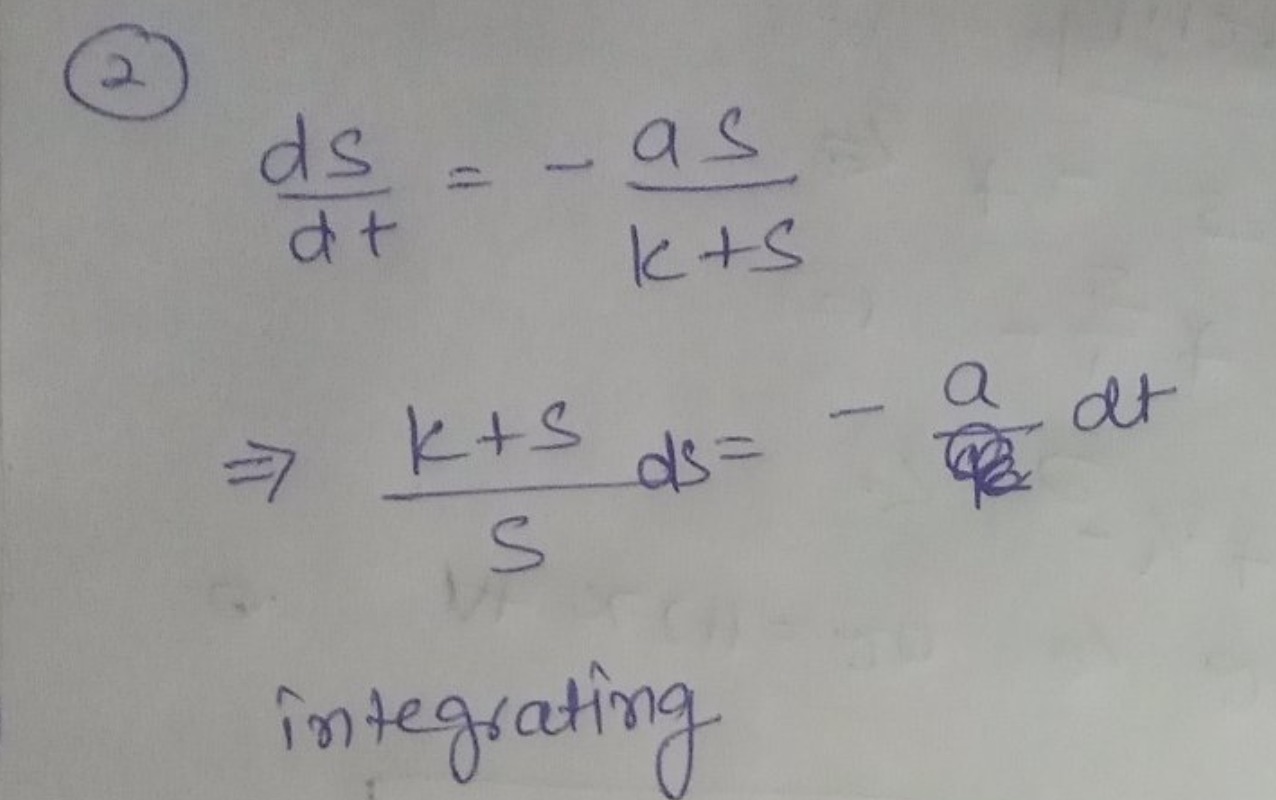 2
ds/dt = - as/k+s
⇒ k+s/s ds = - a/ dt
integrating